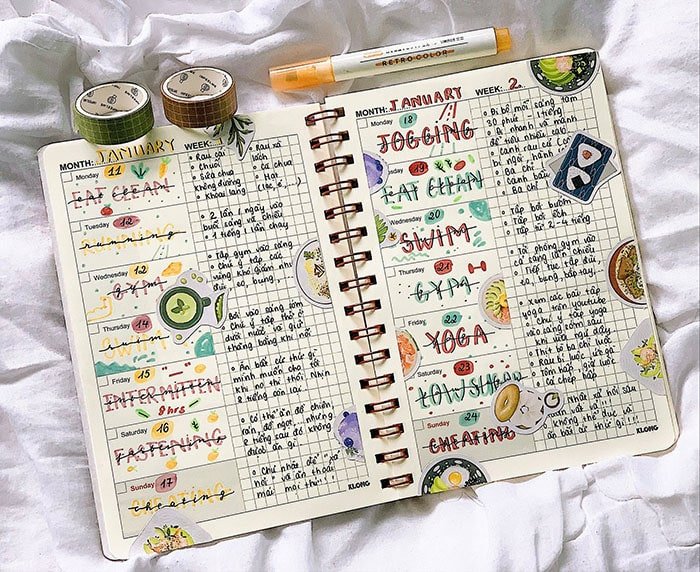 RETRO COLOR
MONTH: JANUARY WEEK: 1
Monday 11
EAT CLEAN
• Rau cải
• Chuối
• Sữa chua
không đường
• Khoai lang
• Rau xà
lách
• Cà chua
• Hạt
Tuesday 12
running
• 2 lần 1 ngày vào
buổi sáng và chiều
• 1 tiếng 1 lần chạy
Wednesday 12
GYM
• Tập gym vào sáng
• Chú ý tập các
vùng khó giảm như
eo, bụng,
Thursday 14
SWIM
swim
Bơi vào sáng sớm
Chú ý tập thở
dưới nước và giữ
thăng bằng khi nổi
Friday 15
INTERMITTEN
8hrs
• Ăn bất cứ thứ gì
mình muốn cho tới
khi no thì thôi Nhịn
8 tiếng còn lại
Saturday 16
FASTENING
• Có thể ăn đồ chiên,
rán, đồ ngọt,... nhưng
8 tiếng sau đó không
được ăn gì!
Sunday 17
CHEATING
cheating
• Chủ nhật để "xả
hơi" và ăn thoải
mái mái thui!!!
KLONG
MONTH: JANUARY WEEK: 2
Monday 18
JOGGING
• Đi bộ mỗi sáng tầm
30 phút - 1 tiếng
• Đi nhanh và mạnh
để tiêu nhiều calo
Tuesday 19
EAT CLEAN
• Canh rau củ
bí ngô
• Canh bầu
• Ba chỉ
Wednesday 20
SWIM
• Tập bơi bướm
• Tập bơi ếch
• Tập từ 2-4 tiếng
Thursday 21
GYM
• Tới phòng gym vào
cả sáng lẫn chiều
• Tiếp tục tập đùi,
eo, bụng, bắp tay,...
Friday 22
YOGA
• Xem các bài tập
yoga trên youtube
• Chú ý tập yoga
vào sáng sớm sau
khi vừa ngủ dậy
Saturday 23
LOW SUGAR
• Thịt bò ba chỉ luộc
• Rau bí luộc
• Tôm hấp
• Cá chép hấp
Sunday 24
CHEATING
KLONG